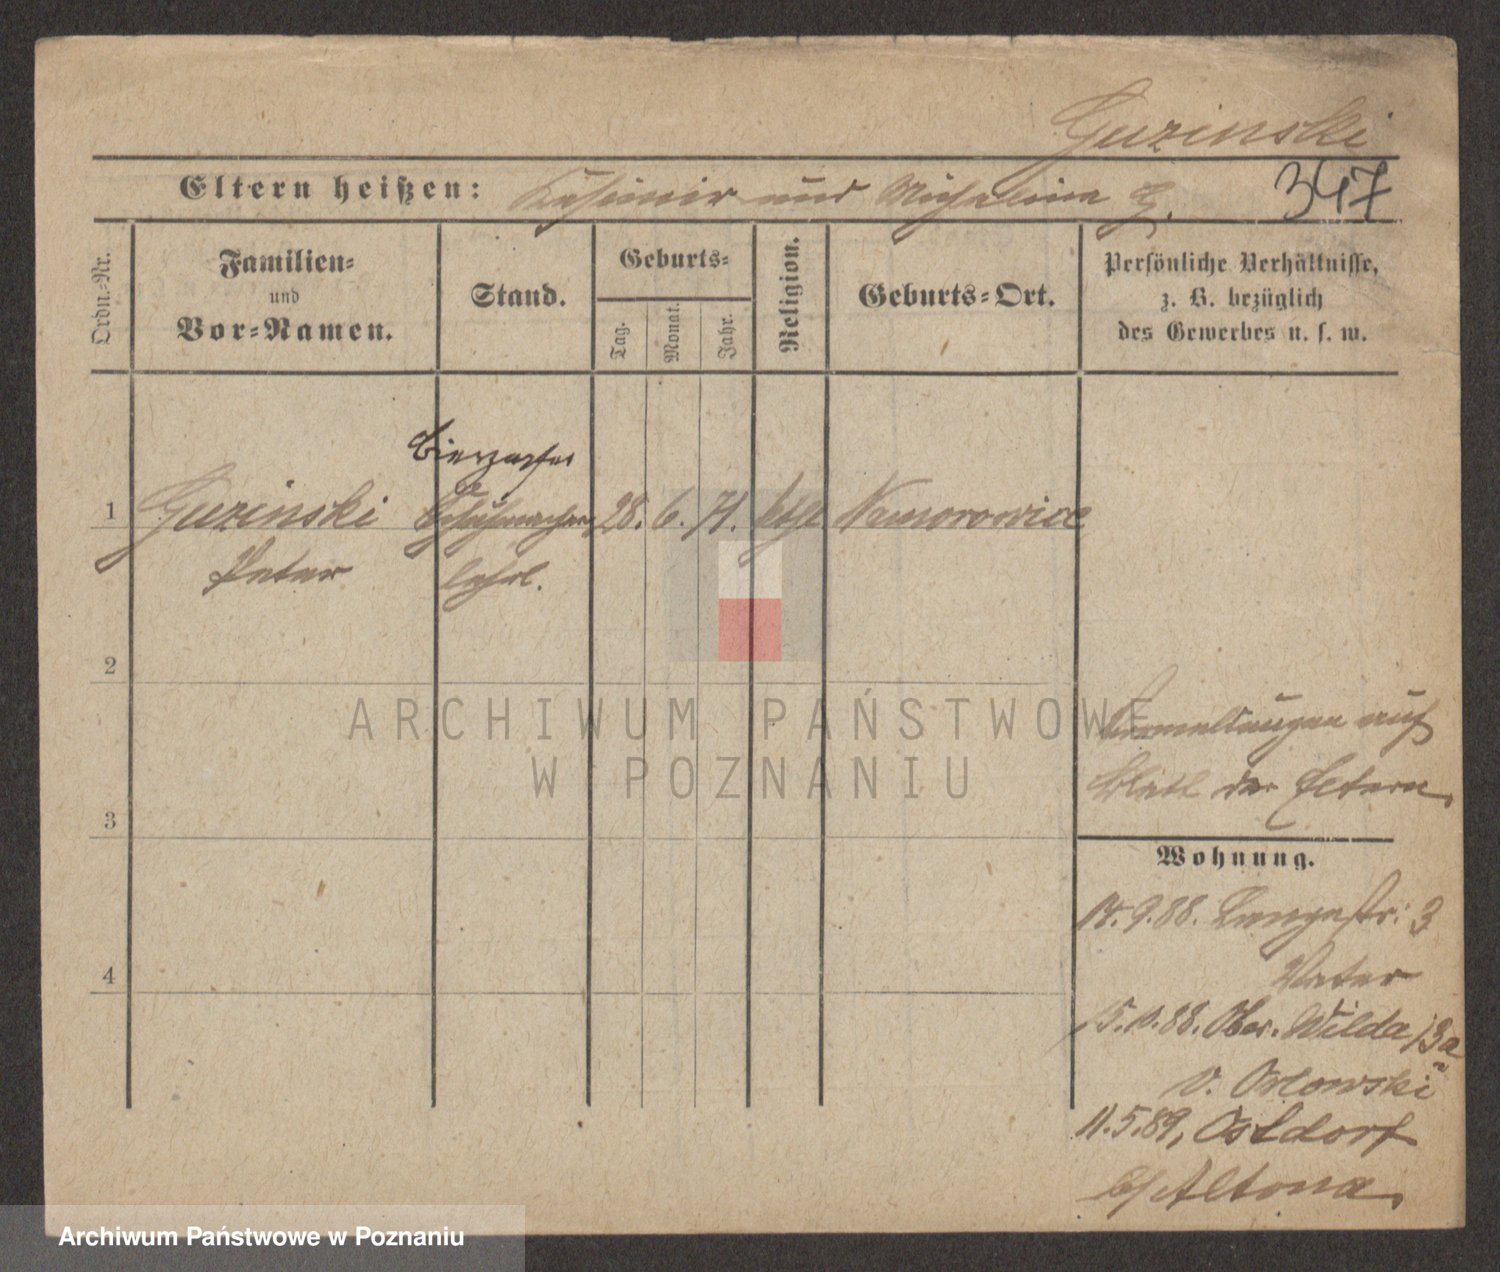 Guzinski
Eltern heißen: Kasimir und Michalina G.
347
Ordn.-Nr.
Familien-
und
Vor-Namen.
Stand.
Geburts-
Tag.
Monat.
Jahr.
Religion.
Geburts-Ort.
Persönliche Verhältnisse,
z. B. bezüglich
des Gewerbes u. s. w.
Bierzapfer
1 Guzinski Schuhmacher 28. 6. 71. kath Niemorowice
Peter lehrl.
2
3
4
Anmeldungen auf
Blatt der Eltern.
Wohnung.
18.9.88. Langestr. 3
Vater
15.10.88. Ober-Wilda 13a
b. Orlowski
11.5.89, Ostdorf
b/Altona.
ARCHIWUM PAŃSTWOWE
W POZNANIU
Archiwum Państwowe w Poznaniu